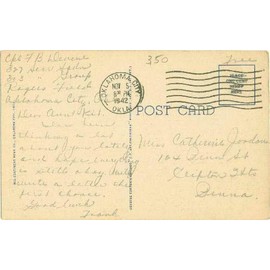 Cpl F B Devine
307 Serv Sqdn
Group
Rogers Field
Oklahoma City, O
Dear Aunt Kit.
Have been
thinking a lot
about you lately
and hope everything
is still okay. Will
write a letter the
first chance.
Good luck
Frank
OKLAHOMA CITY
NOV 5
PM
1942
OKLA.
350
Free
POST CARD
Miss Catherine Jordan
104 Penn St
Clifton Hts
Penna.